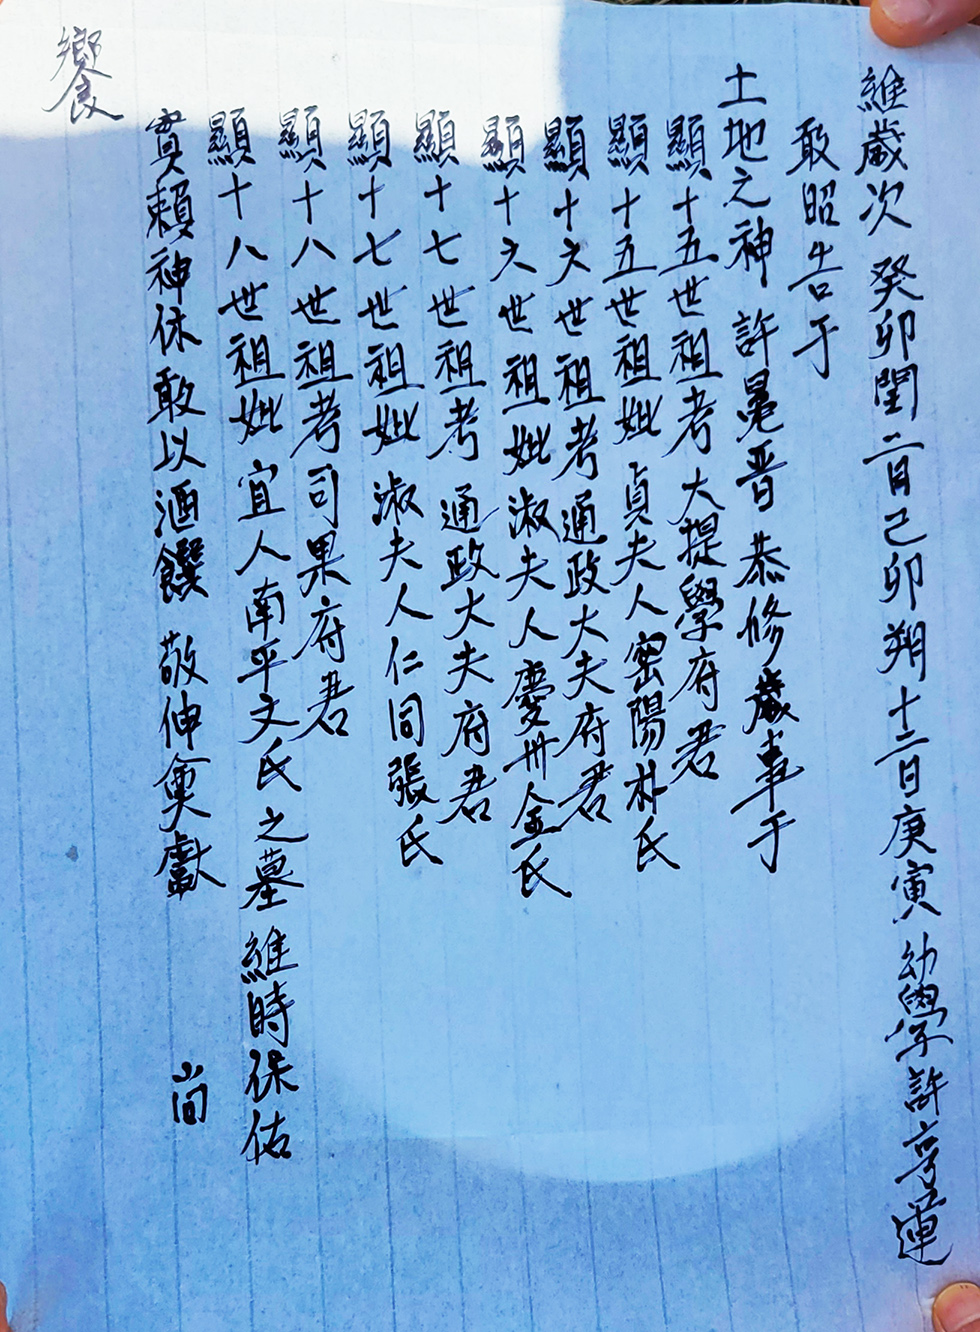 維歲次 癸卯閏二月己卯朔十二日庚寅 幼學許亨運
敢昭告于
土地之神 許冕晋 恭修歲事于
顯十五世祖考 大提學府君
顯十五世祖妣 貞夫人密陽朴氏
顯十六世祖考通政大夫府君
顯十六世祖妣 淑夫人慶州金氏
顯十七世祖考 通政大夫府君
顯十七世祖妣 淑夫人仁同張氏
顯十八世祖考 司果府君
顯十八世祖妣 宜人南平文氏之墓 維時保佑
實賴神休 敢以酒饌 敬伸奠獻 尙
饗